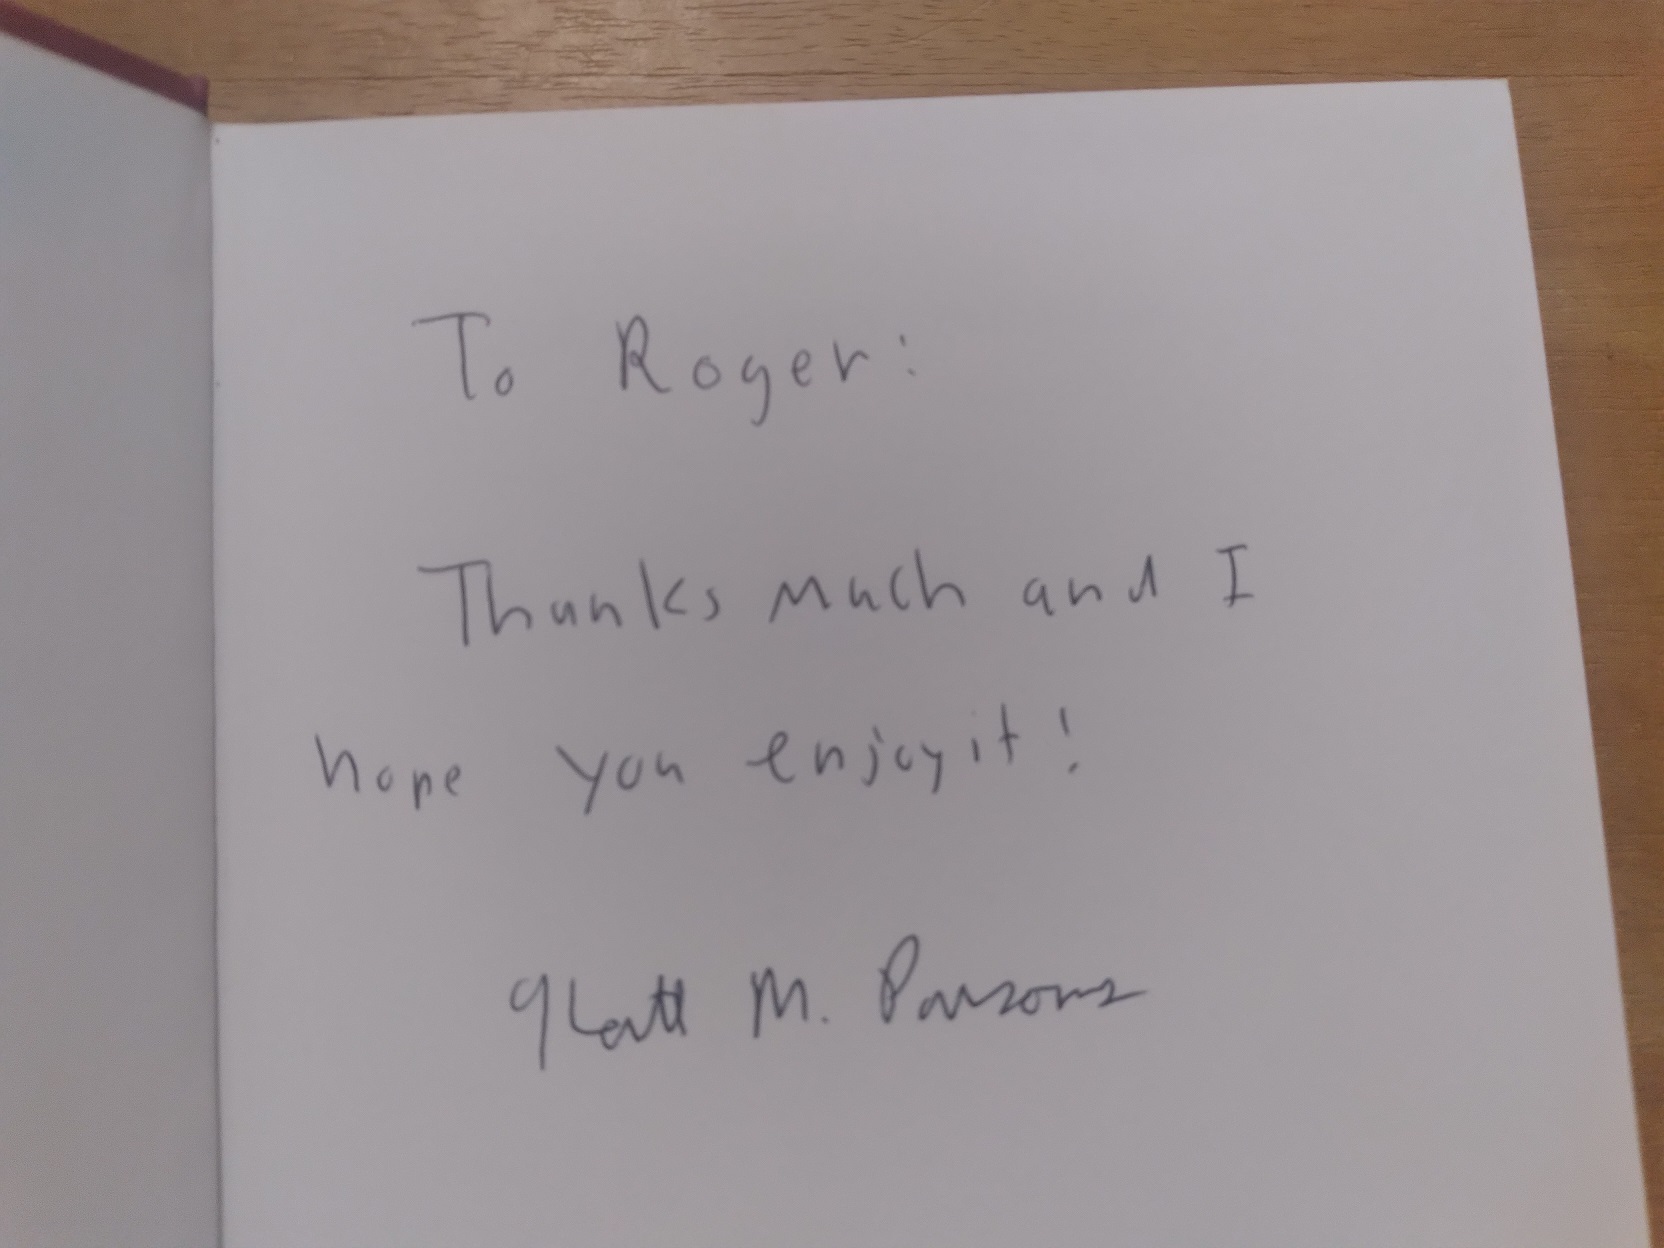 To Roger:
Thanks much and I
hope you enjoy it!
M. Parsons